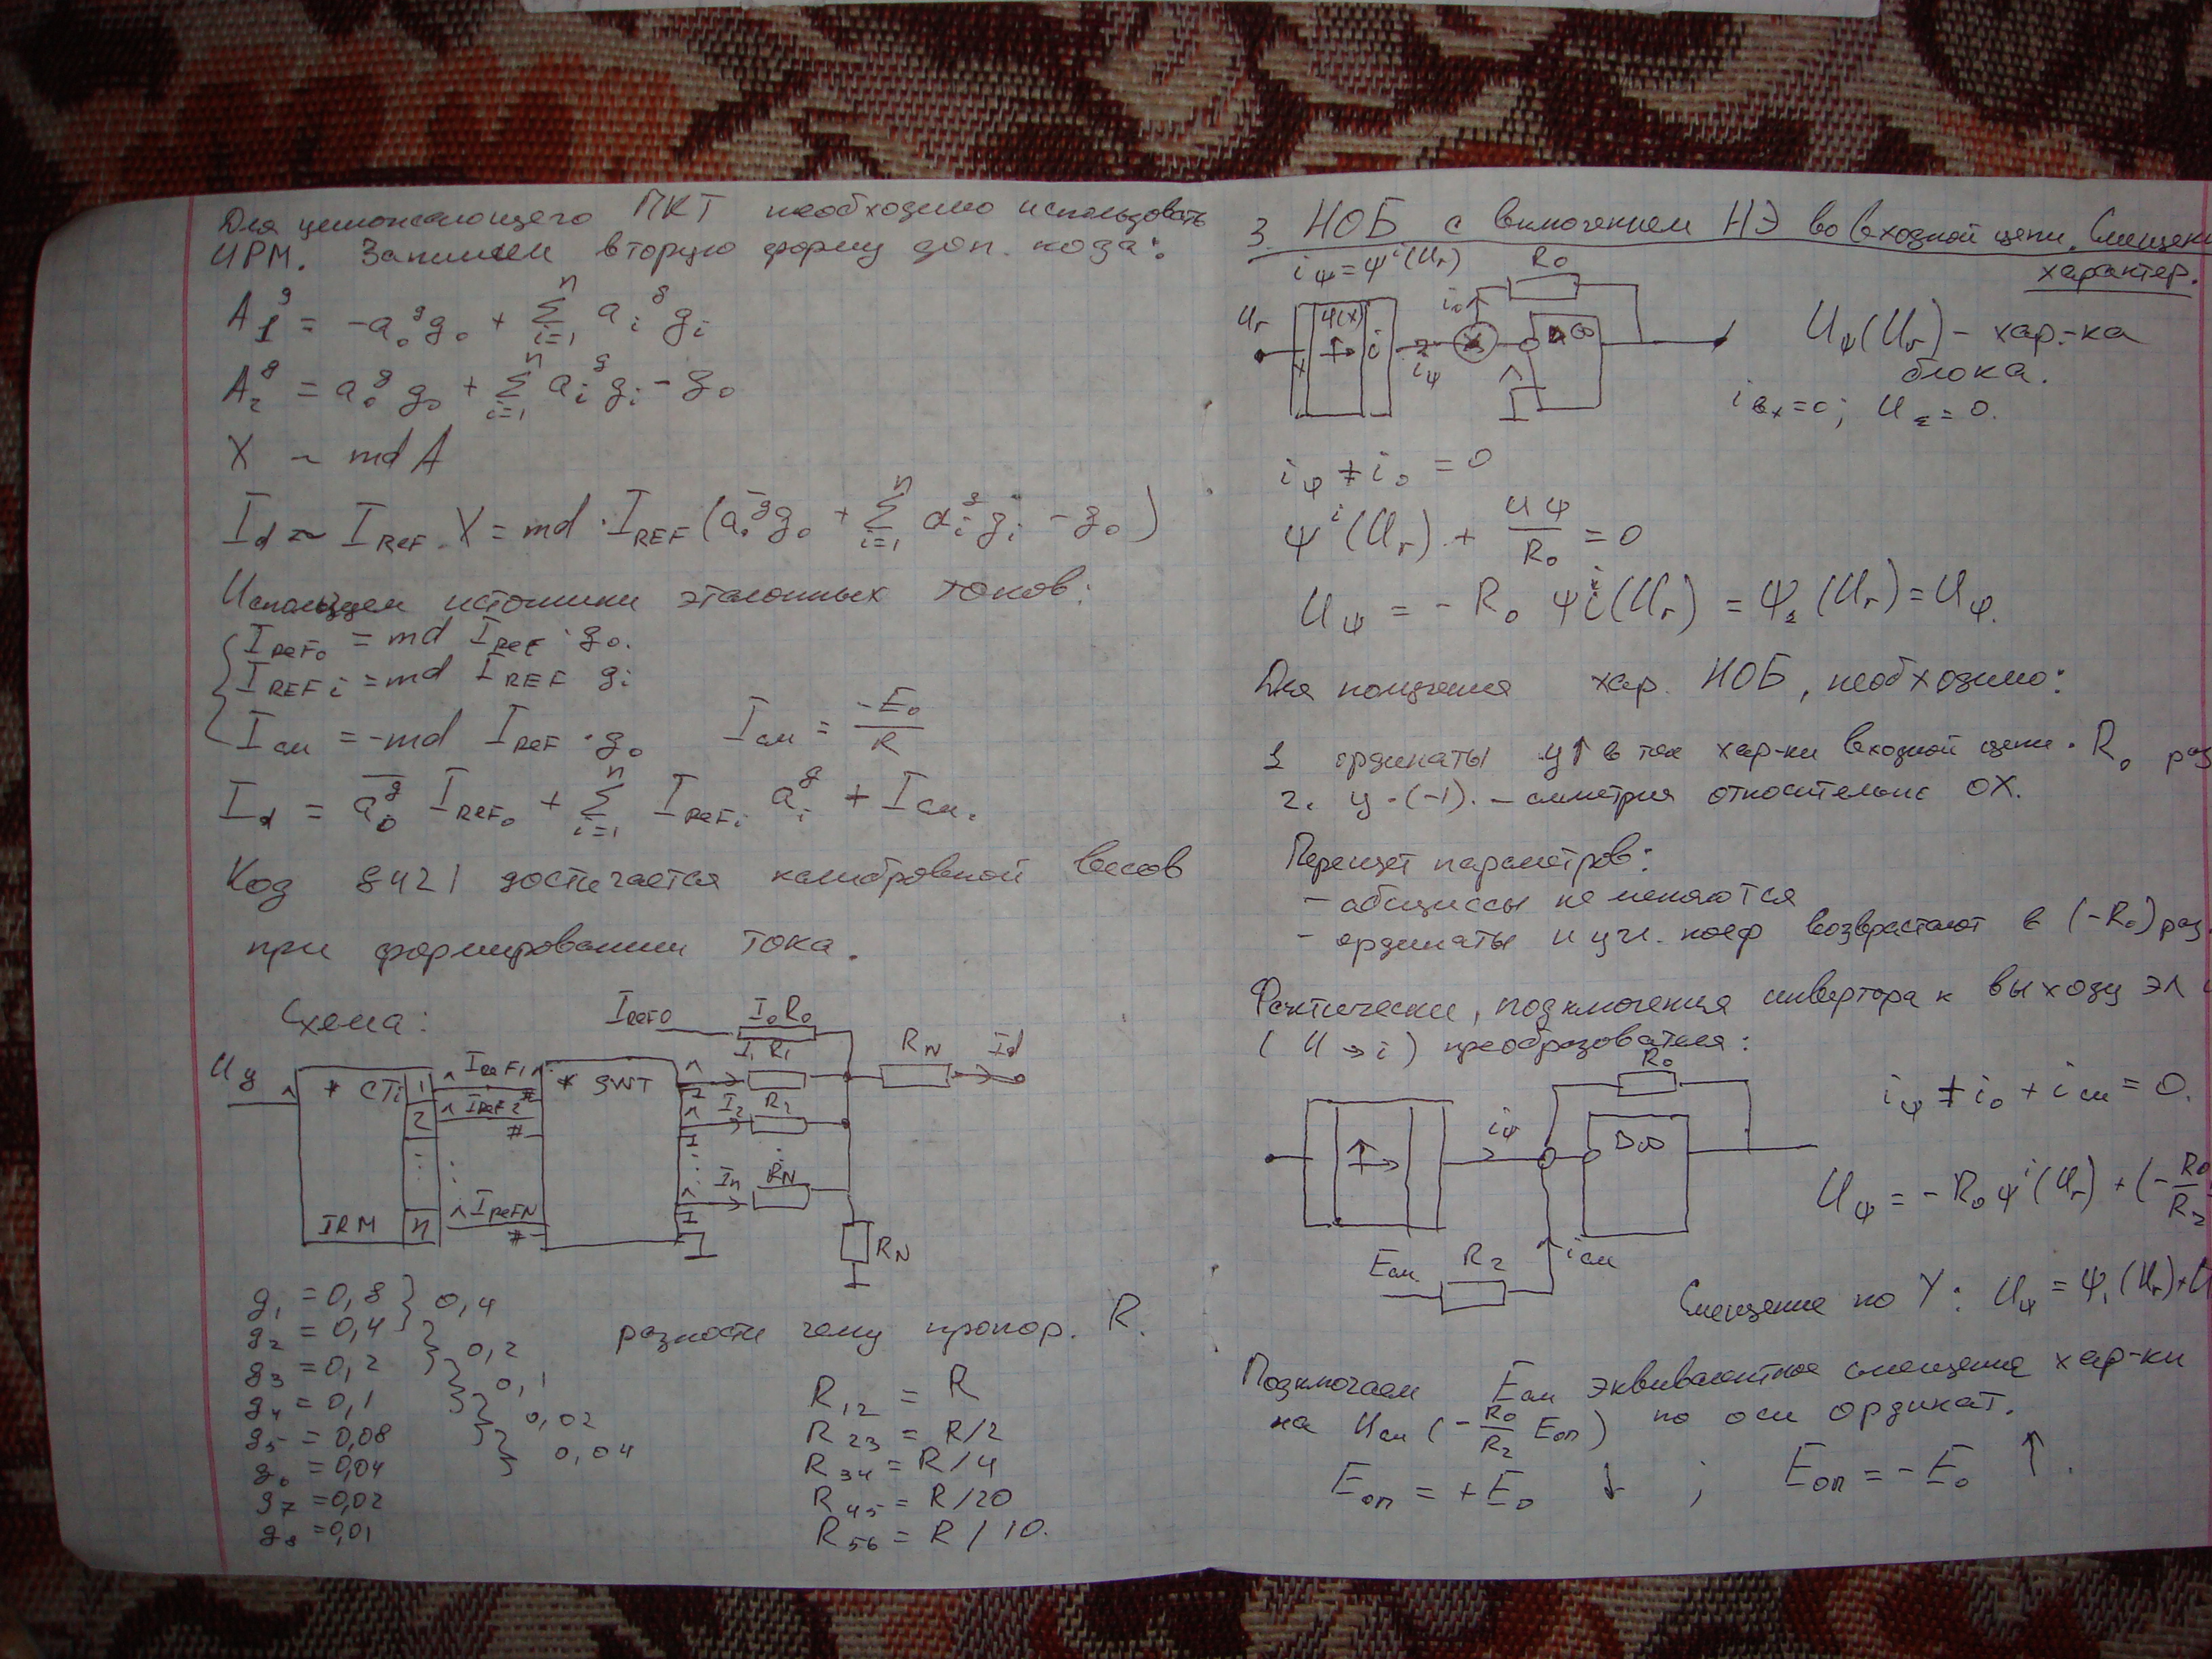 Для умножающего ПКТ необходимо использовать
ИРМ. Запишем вторую форму доп. кода:
A₁ᵍ = -a₀ᵍg₀ + Σᵢ₌₁ⁿ aᵢᵍgᵢ
A₂ᵍ = a₀ᵍg₀ + Σᵢ₌₁ⁿ aᵢᵍgᵢ - g₀
X ~ md A
I_d ~ I_REF · X = md · I_REF (a̅₀ᵍg₀ + Σᵢ₌₁ⁿ aᵢᵍgᵢ - g₀)
Используем источники эталонных токов:
I_REF₀ = md I_REF · g₀.
I_REFi = md I_REF gᵢ
I_см = -md I_REF · g₀ I_см = -E₀/R
I_d = a̅₀ᵍ I_REF₀ + Σᵢ₌₁ⁿ I_REFi aᵢᵍ + I_см.
Код 8421 достигается калибровкой весов
при формировании тока.
Схема:
I_REF0 I₀ R₀
U_y * CTi 1 2 n IRM
I_REF1 I_REF2 I_REFN
* SWT
I₁ R₁ I₂ R₂ Iₙ R_N
R_N I_d
R_N
g₁ = 0,8 } 0,4
g₂ = 0,4 } 0,2
g₃ = 0,2 } 0,1
g₄ = 0,1 } 0,02
g₅ = 0,08 } 0,04
g₆ = 0,04
g₇ = 0,02
g₈ = 0,01
разности чему пропор. R.
R₁₂ = R
R₂₃ = R/2
R₃₄ = R/4
R₄₅ = R/20
R₅₆ = R/10.
3. НОБ с включением НЭ во входной цепи. Смещен
характер.
i_ψ = ψⁱ(U_r) R₀
U_r ψ(X) X i i_ψ i₀ ▷∞
U_ψ(U_r) - хар-ка
блока.
i_вх = 0; U_Σ = 0.
i_ψ + i₀ = 0
ψⁱ(U_r) + Uψ/R₀ = 0
U_ψ = -R₀ ψⁱ(U_r) = ψ₂(U_r) = U_ψ.
Для получения хар. НОБ, необходимо:
1 ординаты y↑ в ток хар-ки входной цепи · R₀ раз
2. y · (-1). - симетрия относительно OX.
Перещет параметров:
- абциссы не меняются
- ординаты и угл. коэф возврастают в (-R₀) раз.
Фактически, подключения инвертора к выходу эл
(U → i) преобразователя:
R₀ i_ψ ▷∞
E_см R₂ i_см
i_ψ + i₀ + i_см = 0.
U_ψ = -R₀ψⁱ(U_r) + (-R₀/R₂
Смещение по Y: U_ψ = ψ₁(U_r) + U
Подключаем E_см эквивалентное смещение хар-ки
на U_см (-R₀/R₂ E_оп) по оси ординат.
E_оп = +E₀ ↓ ; E_оп = -E₀ ↑.